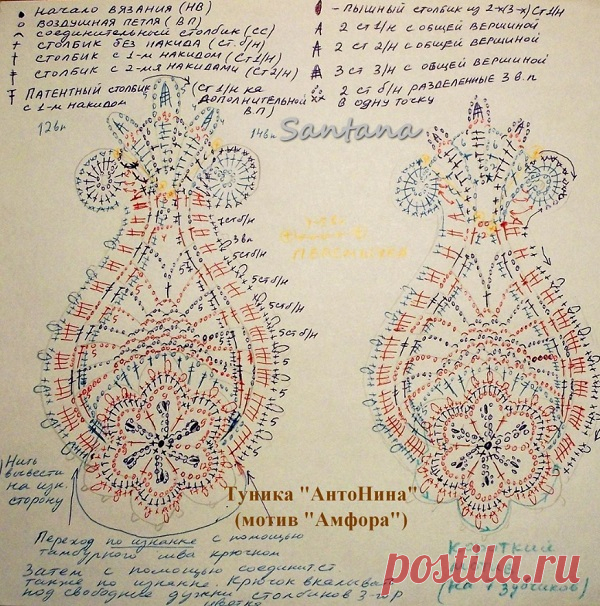 • начало вязания (НВ)
о воздушная петля (ВП)
⌒ соединительный столбик (сс)
+ столбик без накида (ст.б/н)
† столбик с 1-м накидом (ст1/н)
столбик с 2-мя накидами (ст2/н)
Патентный столбик (ст 1/н на
с 1-м накидом дополнительной
в.п)
-пышный столбик из 2-х(3-х)ст1/н
2 ст 1/н с общей вершиной
2 ст 2/н с общей вершиной
3 ст 3/н с общей вершиной
2 ст б/н разделенные 3 в.п
в одну точку
Santana
7стб/н
3вп
5стб/н
5стб/н
5стб/н
5
5
5
5
5
5
Нить
вывести
на изн.
сторону
Туника "АнтоНина"
(мотив "Амфора")
Переход по изнанке с помощью
тамбурного шва крючком
Затем с помощью соединит.ст.
также по изнанке. Крючок вкалывать
под свободные дужки столбиков 3-го р
короткий
мотив
(на 7 зубчиков)
postila.ru